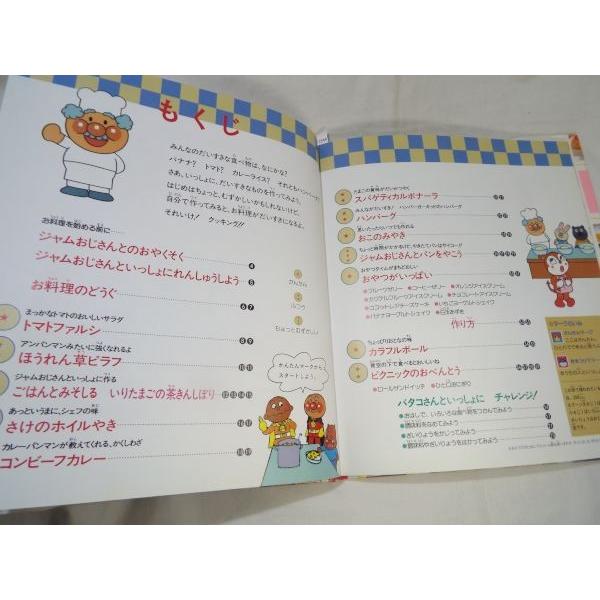 もくじ
みんなのだいすきな食べ物は、なにかな?
バナナ? トマト? カレーライス? それともハンバーグ?
さあ、いっしょに、だいすきなものを作ってみよう。
はじめはちょっと、むずかしいかもしれないけど、
自分で作ってみると、お料理がだいすきになるよ。
それいけ! クッキング!!
お料理を始める前に
ジャムおじさんとのおやくそく 4
ジャムおじさんといっしょにれんしゅうしよう 5
お料理のどうぐ 6 7
かんたん
ふつう
ちょっとむずかしい
まっかなトマトのおいしいサラダ
トマトファルシ 8 9
アンパンマンみたいに強くなれるよ
ほうれん草ピラフ 10 11
ジャムおじさんといっしょに作る
ごはんとみそしる いりたまごの茶きんしぼり 12 13 14 15
あっというまに、シェフの味
さけのホイルやき 16 17
カレーパンマンが教えてくれる、かくしわざ
コンビーフカレー 18 19
かんたんマークから
スタートしよう。
たまごの黄身がだいかつやく
スパゲティカルボナーラ
みんながだいすき! ハンバーガーキッドのハンバーグ
ハンバーグ
おこのみやき
ジャムおじさんとパンをやこう
おやつタイムがまちどおしい
おやつがいっぱい
フルーツゼリー コーヒーゼリー オレンジアイスクリーム
カラフルフルーツアイスクリーム チョコレートアイスクリーム
ココットレアチーズケーキ いちごヨーグルトシェイク
バナナヨーグルトシェイク
作り方
ちょっぴりおとなの味
カラフルボール
青空の下で食べるとおいしいね
ピクニックのおべんとう
ロールサンドイッチ ひと口おにぎり
バタコさんといっしょに チャレンジ!
おはしで、いろいろな食べ物をつかんでみよう
調味料をなめてみよう
ざいりょうをかじってみよう
調味料やざいりょうをはかってみよう